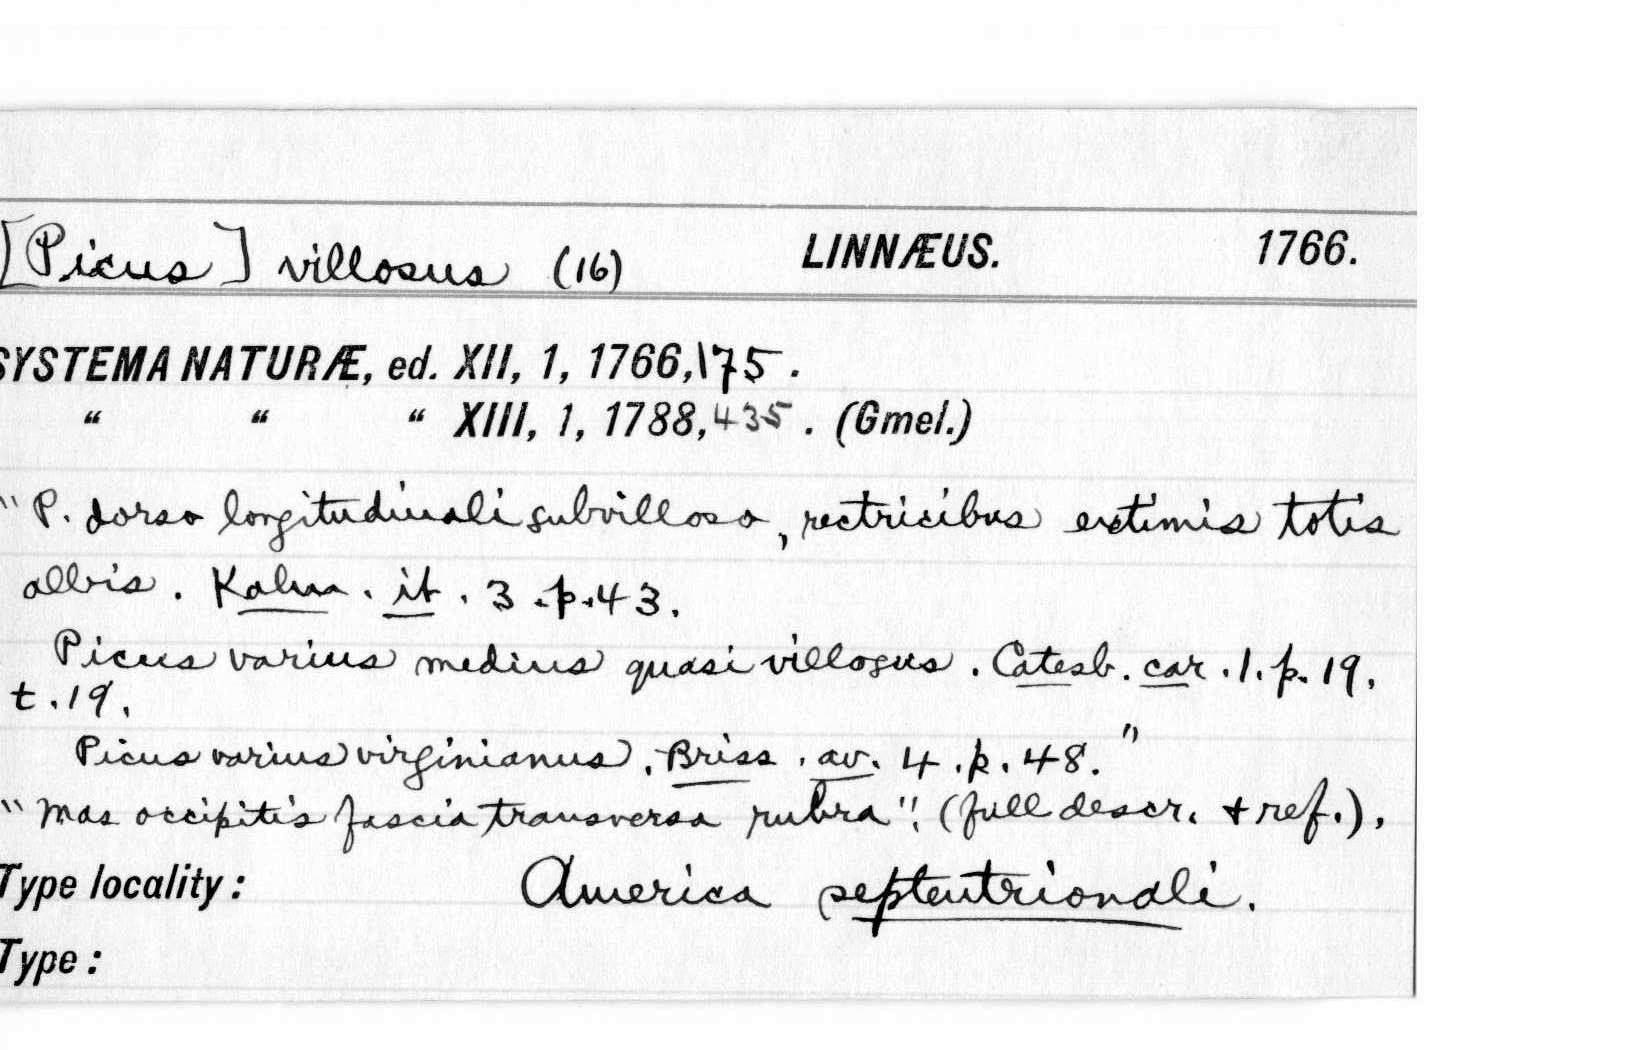 [Picus] villosus (16) LINNÆUS. 1766.
SYSTEMA NATURÆ, ed. XII, 1, 1766, 175.
“ “ “ XIII, 1, 1788, 435. (Gmel.)
"P. dorso longitudinali subvilloso, rectricibus extimis totis
albis. Kalm. it. 3.p.43.
Picus varius medius quasi villosus. Catesb. car. 1. p. 19.
t. 19.
Picus varius virginianus. Briss. av. 4. p. 48."
"Mas occipitis fascia transversa rubra". (full descr. + ref.).
Type locality: America septentrionali.
Type: